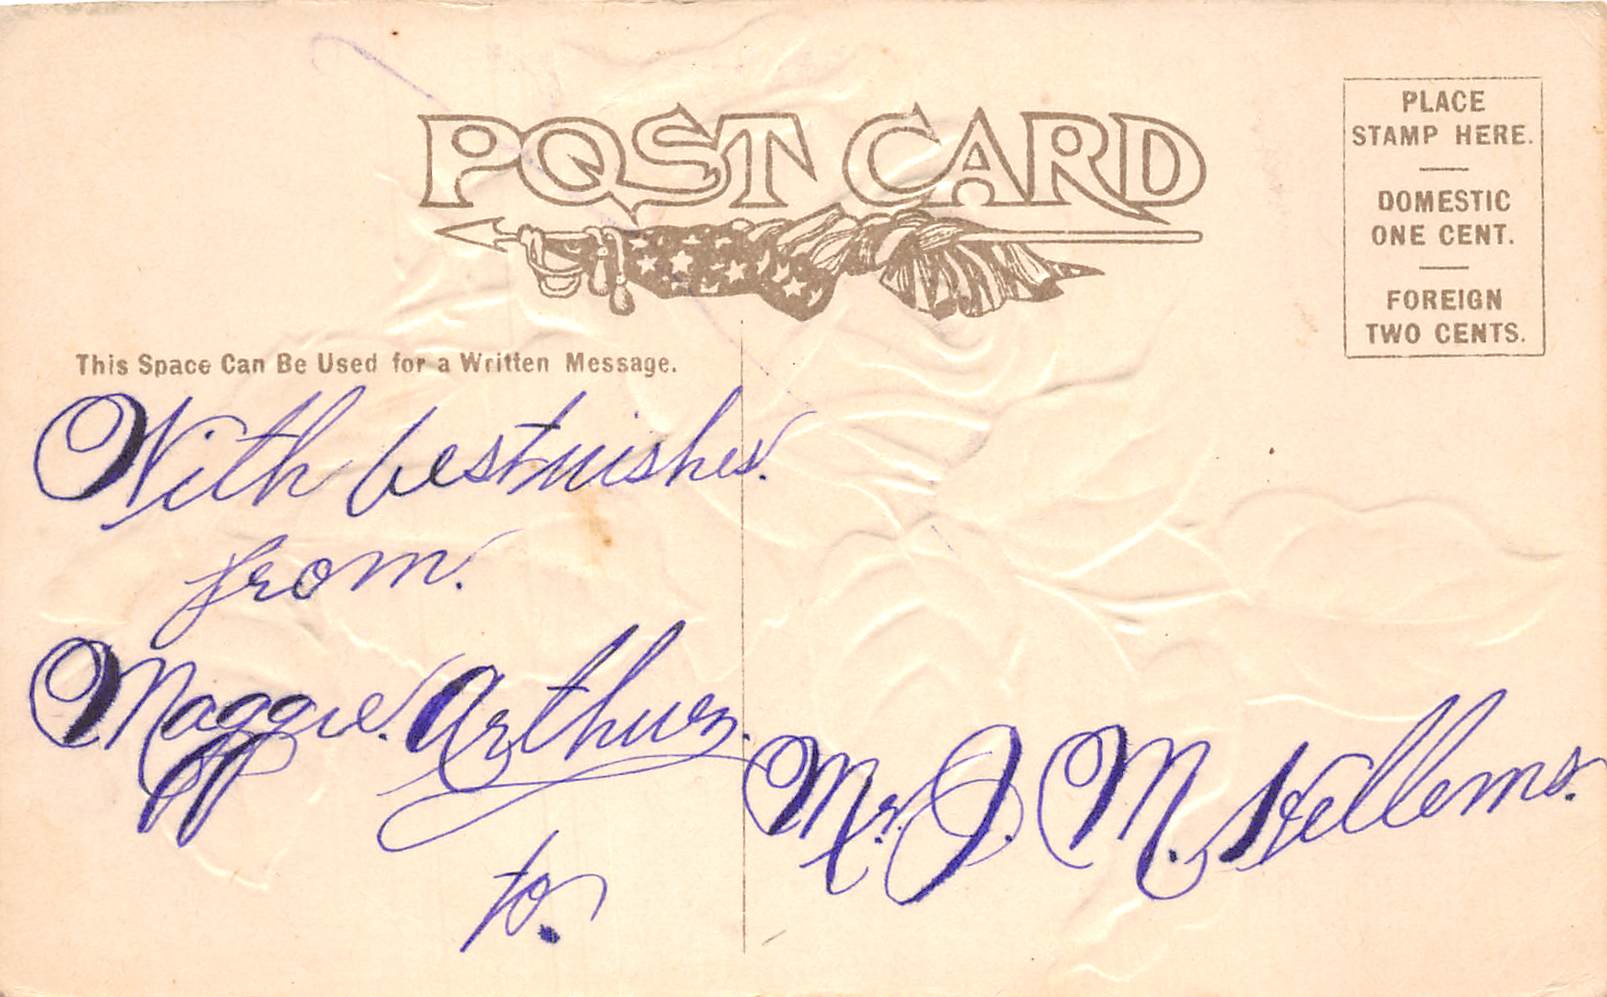 POST CARD
PLACE
STAMP HERE.
DOMESTIC
ONE CENT.
FOREIGN
TWO CENTS.
This Space Can Be Used for a Written Message.
With best wishes.
from.
Maggie. Arthur.
to.
Mr. J. M.